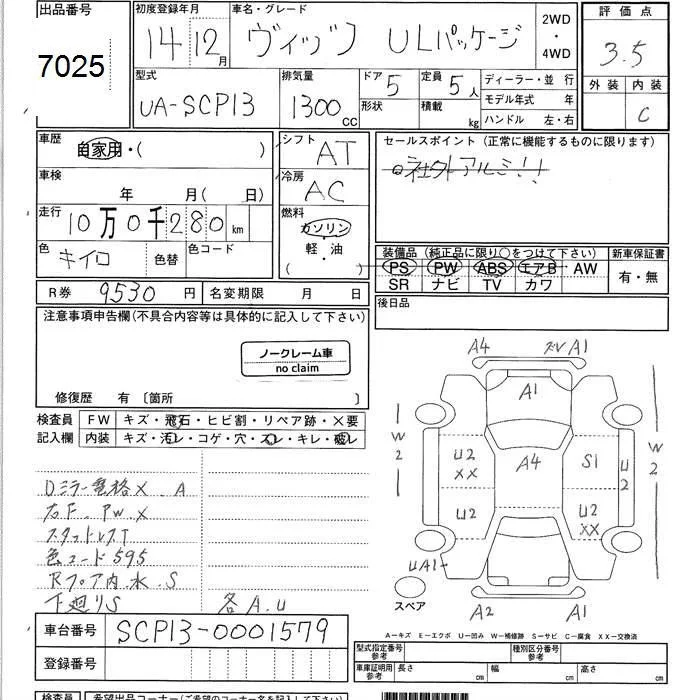 出品番号
7025
初度登録年月
14 12月
車名・グレード
ヴィッツ ULパッケージ
2WD
・
4WD
評価点
3.5
外装 内装
C
型式
UA-SCP13
排気量
1300 CC
ドア 5
形状
定員 5人
積載 kg
ディーラー・並 行
モデル年式 年
ハンドル 左・右
車歴
自家用・( )
シフト
AT
セールスポイント (正常に機能するものに限ります)
社外アルミ!!
車検
年 月( 日)
冷房
AC
走行
10万0千280km
燃料
ガソリン
軽・油
・
( )
色
キイロ
色替
色コード
装備品 (純正品に限り○をつけて下さい)
PS PW ABS エアB AW
SR ナビ TV カワ
新車保証書
有・無
R券 9530円
名変期限 月 日
後日品
注意事項申告欄(不具合内容等は具体的に記入して下さい)
ノークレーム車
no claim
修復歴 有 〔箇所 〕
検査員
記入欄
FW キズ・飛石・ヒビ割・リペア跡・×要
内装 キズ・汚レ・コゲ・穴・スレ・キレ・破レ
Dミラー電格X.A
右F.PW.X
スタットレスT
色コード595
Rフロア内.水.S
下廻りS 各A.U
A4 ズレA1
A1
W2
U2
XX
A4
S1
U2
W2
U2
U2
XX
UA1
スペア
A2 A1
A-キズ E-エクボ U-凹み W-補修跡 S-サビ C-腐食 XX-交換済
車台番号
SCP13-0001579
登録番号
型式指定番号
参考
種別区分番号
参考
車庫証明用
参考
長さ cm 幅 cm 高さ cm
検査員
希望出品コーナー(ご希望のコーナー名を記入して下さい)